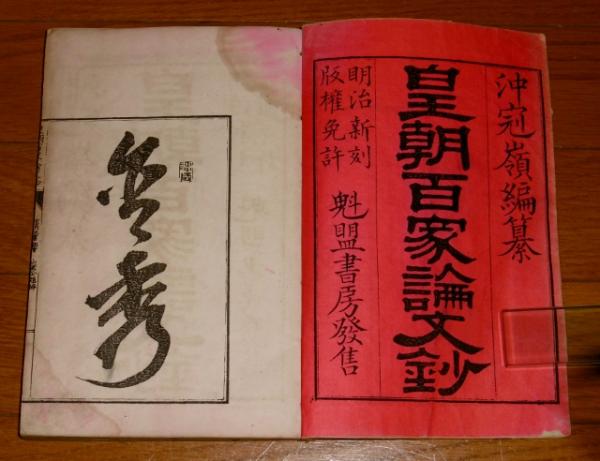 沖冠嶺編纂
皇朝百家論文鈔
明治新刻
版權免許
魁盟書房發售
秀